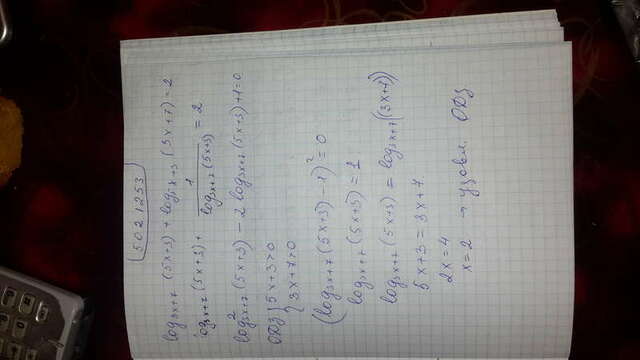 5021253
log₃ₓ₊₇ (5x+3) + log₅ₓ₊₃ (3x+7) = 2
log₃ₓ₊₇ (5x+3) + 1/log₃ₓ₊₇ (5x+3) = 2
log²₃ₓ₊₇ (5x+3) − 2 log₃ₓ₊₇ (5x+3) + 1 = 0
ОДЗ { 5x+3>0
3x+7>0
(log₃ₓ₊₇ (5x+3) − 1)² = 0
log₃ₓ₊₇ (5x+3) = 1
log₃ₓ₊₇ (5x+3) = log₃ₓ₊₇ (3x+7)
5x+3 = 3x+7
2x = 4
x = 2 → удовл. ОДЗ